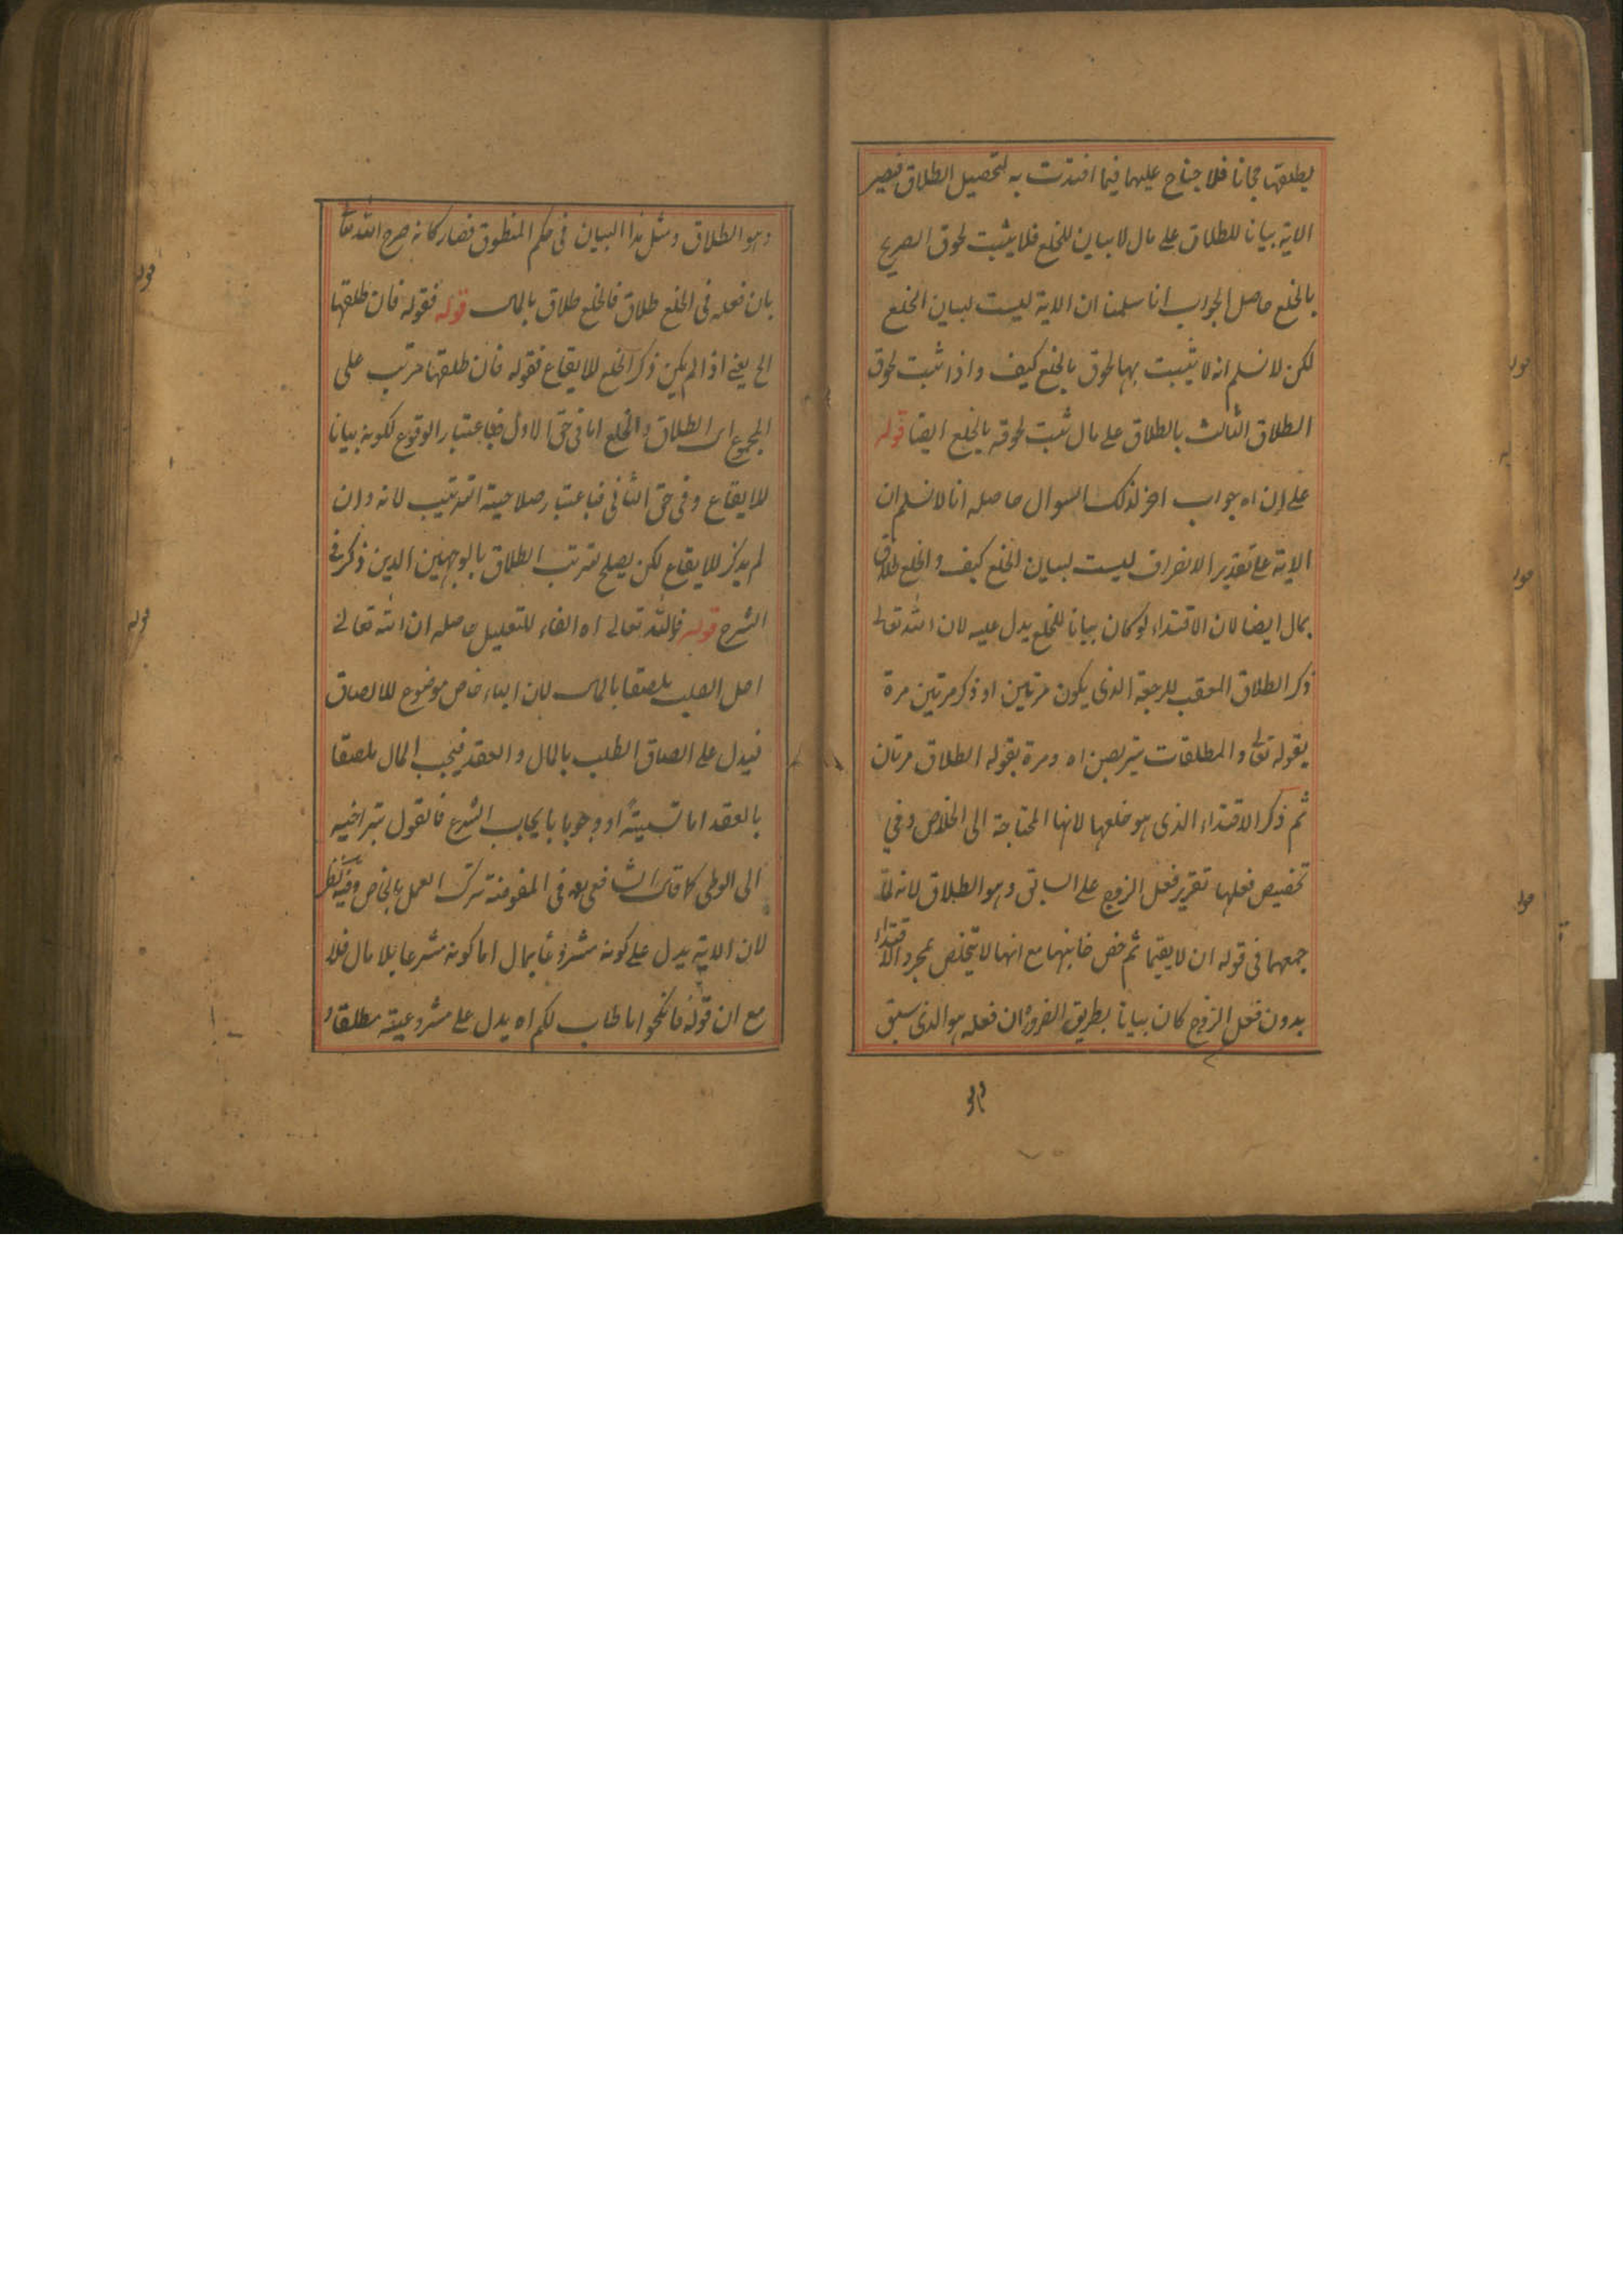 يطلقها مجانا فلا جناح عليهما فيما افتدت به لتحصيل الطلاق فيصير
الاية بيانا للطلاق على مال لا بيان للخلع فلا يثبت لحوق الصريح
بالخلع حاصل الجواب انا سلمنا ان الاية ليست لبيان الخلع
لكن لا نسلم انه لا يثبت بها لحوق بالخلع كيف واذا ثبت لحوق
الطلاق الثالث بالطلاق على مال ثبت لحوقه بالخلع ايضا قوله
على ان اه جواب اخر لذلك السوال حاصله انا لا نسلم ان
الاية على تقدير الانفراق ليست لبيان الخلع كيف والخلع طلاق
بمال ايضا لان الافتداء لو كان بيانا للخلع يدل عليه لان الله تعالى
ذكر الطلاق المعقب للرجعة الذى يكون مرتين او ذكر مرتين مرة
بقوله تعالى والمطلقات يتربصن اه ومرة بقوله الطلاق مرتان
ثم ذكر الافتداء الذى هو خلعها لانها المحتاجة الى الخلاص وفي
تخصيص فعلها تقرير فعل الزوج على السابق وهو الطلاق لانه لما
جمعهما فى قوله ان لا يقيما ثم خص جانبها مع انها لا يتخلص بمجرد الافتداء
بدون فعل الزوج كان بيانا بطريق الضرورة ان فعله هو الذى سبق
وهو
وهو الطلاق ومثل هذا البيان فى حكم المنطوق فصار كانه صرح الله تعا
بان فعله فى الخلع طلاق فالخلع طلاق بالمال قوله فقوله فان طلقها
الخ يعني اذا لم يكن ذكر الخلع للايقاع فقوله فان طلقها مرتب على
المجموع اى الطلاق والخلع اما فى حق الاول فباعتبار الوقوع لكونه بيانا
للايقاع وفى حق الثانى فباعتبار صلاحية الترتيب لانه وان
لم يذكر للايقاع لكن يصلح لترتب الطلاق بالوجهين الذين ذكر فى
الشرح قوله فالله تعالى اه الفاء للتعليل حاصله ان الله تعالى
احل الطلب ملصقا بالمال لان الباء خاص موضوع للالصاق
فيدل على الصاق الطلب بالمال والعقد فيجب المال ملصقا
بالعقد اما تسمية او وجوبا بايجاب الشرع فالقول بتراخيه
الى الوطى كما قال الشافعى رحمه فى المفوضة ترك العمل بالخاص وفيه نظر
لان الاية يدل على كونه مشروعا بمال اما كونه مشرعا بلا مال فلا
مع ان قوله فانكحوا ما طاب لكم اه يدل على مشروعيته مطلقا و